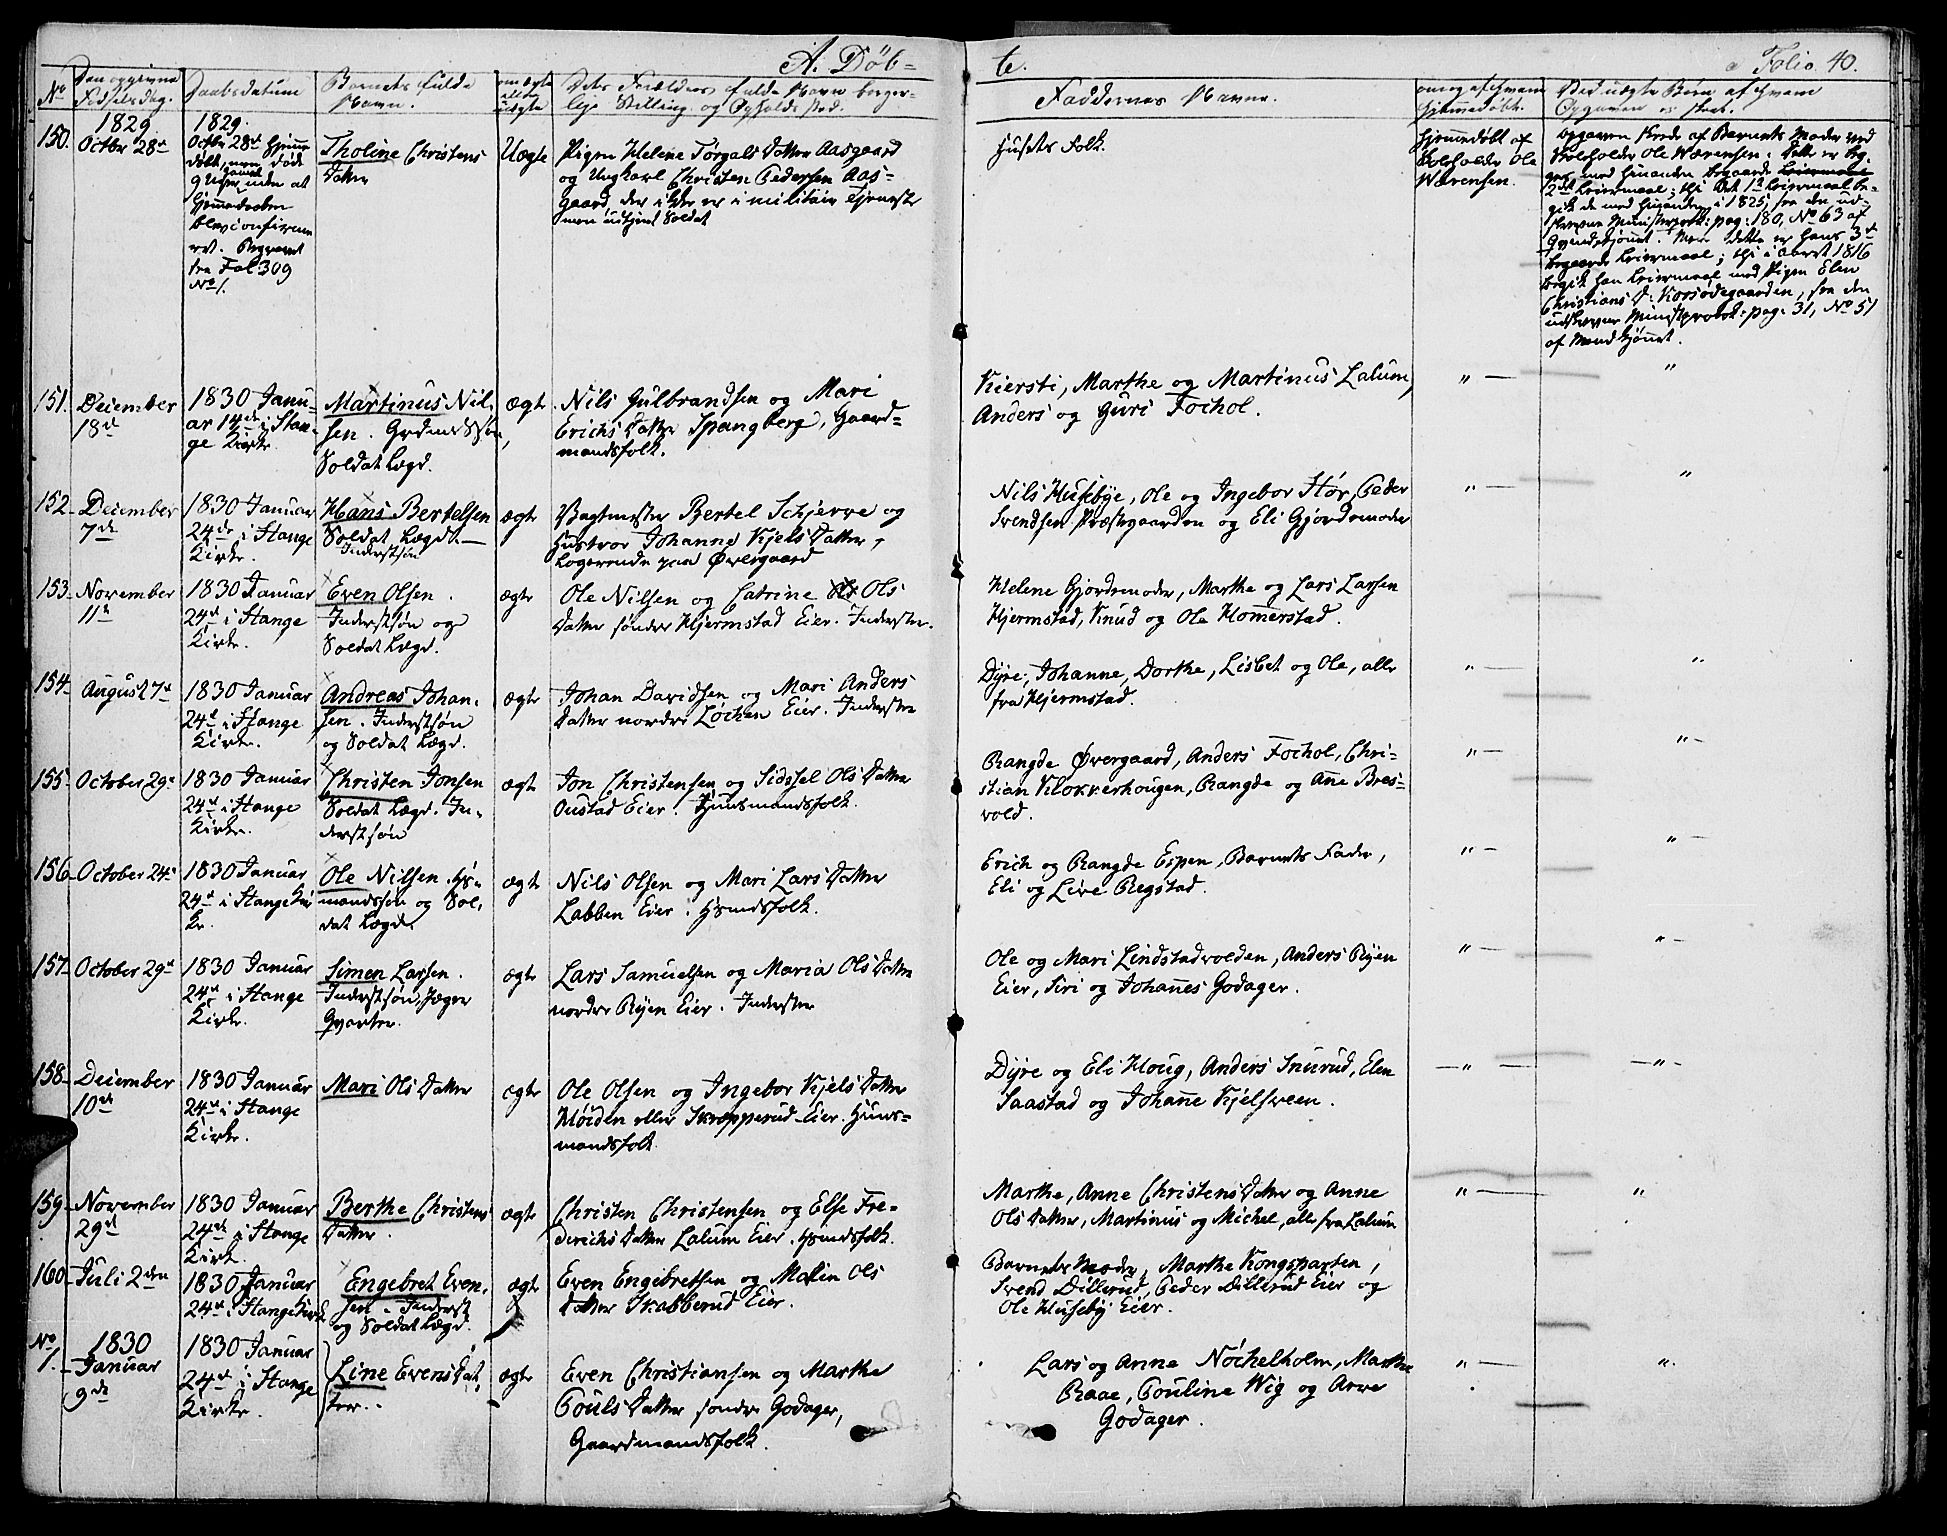 A. Døb-
te.
Folio. 40.
No
Den opgivne
Fødselsdag.
Daabsdatum
Barnets fulde
Navn.
om ægte
eller
uægte
Dets Forældres fulde Navn borger-
lige Stilling og Opholdssted.
Faddernes Navne.
om og af hvem
hjemmedøbt.
Ved uægte Børn af hvem
Opgaven er skeet.
150.
1829
Octbr 28de
1829.
Octbr 28de hjemme
døbt, men døde
uden at
hjemmedaaben
blev confirme
ret. Begravet
fra Fol: 309
No 1.
Tholine Christens
Datter
Uægte
Pigen Helene Torgals Datter Aasgaard
og Ungkarl Christen Pedersen Aas-
gaard, der i der er i militair Tjeneste
men udtjent Soldat
Husets Folk.
hjemmedøbt af
Ole
Nærensen.
Opgaven skede af Barnets Moder ved
Ole Nærensen. Dette er be-
2det Leiermaal; thi det 1ste Leiermaal be-
gik de med hinanden i 1825, fra den ud-
skrevne Ministerprotok: pag: 180, No 63 af
Qvindekjønnet. Men dette er hans 3die
begaaede Leiermaal; thi i Aaret 1816
begik han Leiermaal med Pigen Elen
Christians D: Korsødegaarden, fra den
udskrevne Ministprotok: pag: 31, No 51
af Mandkjønnet.
151.
December
18de
1830 Janu-
ar 14de i Stan-
ge Kirke.
Martinus Nil-
sen. Grdmdssøn,
Soldat Lægd.
ægte
Nils Gulbrandsen og Mari
Erichs Datter Spangberg, Gaard-
mandsfolk.
Kiersti, Marthe og Martinus Lalum,
Anders og Guri Fochol.
" —
"
152.
December
7de
1830 Januar
24de i Stange
Kirke.
Hans Bertelsen
Soldat Lægd. —
Inderstsøn
ægte
Vagtmester Bertel Schjerve og
Hustroe Johanne Kjels Datter,
Logerende paa Øvergaard
Nils Husebye, Ole og Ingebor Stør, Peder
Svendsen Præstegaarden og Eli Gjordemoder
" —
"
153.
November
11te
1830 Januar
24de i Stange
Kirke.
Even Olsen.
Inderstsøn og
Soldat Lægd.
ægte
Ole Nilsen og Catrine Ols
Datter søndre Hjermstad Eier. Inderster.
Helene Gjordemoder, Marthe og Lars Larsen
Hjermstad, Knud og Ole Homerstad.
154.
August 7de
1830 Januar
24de i Stange
Kirke.
Andreas Johan-
sen. Inderstsøn
og Soldat Lægd.
ægte
Johan Davidsen og Mari Anders
Datter nordre Løchen Eier. Inderster
Dyre, Johanne, Dorthe, Lisbet og Ole, alle
fra Hjermstad.
" —
"
155.
October 29de
1830 Januar
24de i Stange
Kirke.
Christen Jonsen
Soldat Lægd. In-
derstsøn
ægte
Jon Christensen og Sidsel Ols Datter
Oustad Eier. Huusmandsfolk.
Rangde Øvergaard, Anders Fochol, Chri-
stian Klokkerhougen, Rangde og Ane Bres-
vold.
" —
" -
156.
October 24de
1830 Januar
24de i Stange Kir
ke.
Ole Nilsen. Hs-
mandssøn og Sol-
dat Lægd.
ægte
Nils Olsen og Mari Lars Datter
Labben Eier. Hsmdsfolk.
Erich og Rangde Espen, Barnets Fader,
Eli og Live Regstad.
" —
" -
157.
October 29de
1830 Januar
24de i Stange
Kirke.
Simen Larsen.
Inderstsøn, Jæger
Qvarter.
ægte
Lars Samuelsen og Maria Ols Datter
nordre Ryen Eier. Inderster
Ole og Mari Lindstadvolden, Anders Ryen
Eier, Siri og Johanes Godager.
" —
" -
158.
December
10de
1830 Januar
24de i Stange
Kirke.
Mari Ols Datter
ægte
Ole Olsen og Ingebor Kjels Datter
Moiden eller Skropperud-Eier. Huus-
mandsfolk.
Dyre og Eli Houg, Anders Snurud, Elen
Saastad og Johane Kjelsveen.
— " —
— " -
159.
November
29de
1830 Januar
24de i Stange
Kirke.
Berthe Christens
Datter.
ægte
Christen Christensen og Else Fre-
derichs Datter Lalum Eier. Hsmdsfolk.
Marthe, Anne Christens Datter og Anne
Ols Datter, Martinus og Michel, alle fra Lalum
" —
"
160.
Juli 2den
1830 Januar
24de i Stange Kirke
Engebret Even-
sen. Inderst
og Soldat Lægd.
ægte
Even Engebretsen og Malin Ols
Datter Skabberud Eier.
Barnets Moder, Marthe Kongsparten,
Svend Dillerud, Peder Dillerud Eier og
Ole Huseby Eier.
No
1.
1830
Januar
9de
1830 Januar
24de i Stange
Kirke.
Line Evens Dat-
ter.
ægte
Even Christiansen og Marthe
Pouls Datter søndre Godager,
Gaardmandsfolk.
Lars og Anne Nöchelholm, Marthe
Raae, Pouline Wig og Arve
Godager.
" —
"